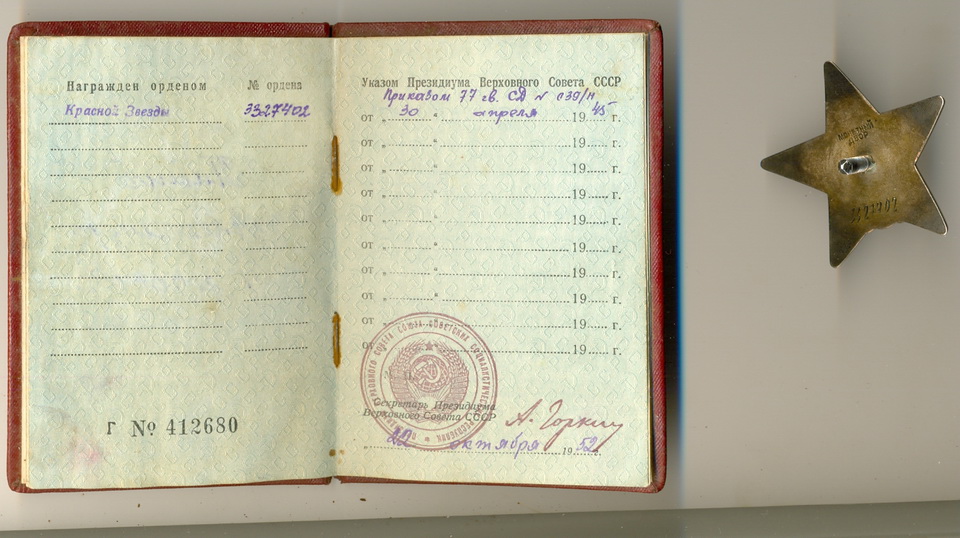 Награжден орденом № ордена
Красной Звезды 3327402
Г № 412680
Указом Президиума Верховного Совета СССР
Приказом 77 гв. СД № 039/н
от „ 30 " апреля 19 45 г.
от „ " 19 г.
от „ " 19 г.
от „ " 19 г.
от „ " 19 г.
от „ " 19 г.
от „ " 19 г.
от „ " 19 г.
от „ " 19 г.
от „ " 19 г.
Секретарь Президиума
Верховного Совета СССР А. Горкин
22 октября 19 52 г.
МОНЕТНЫЙ
ДВОР